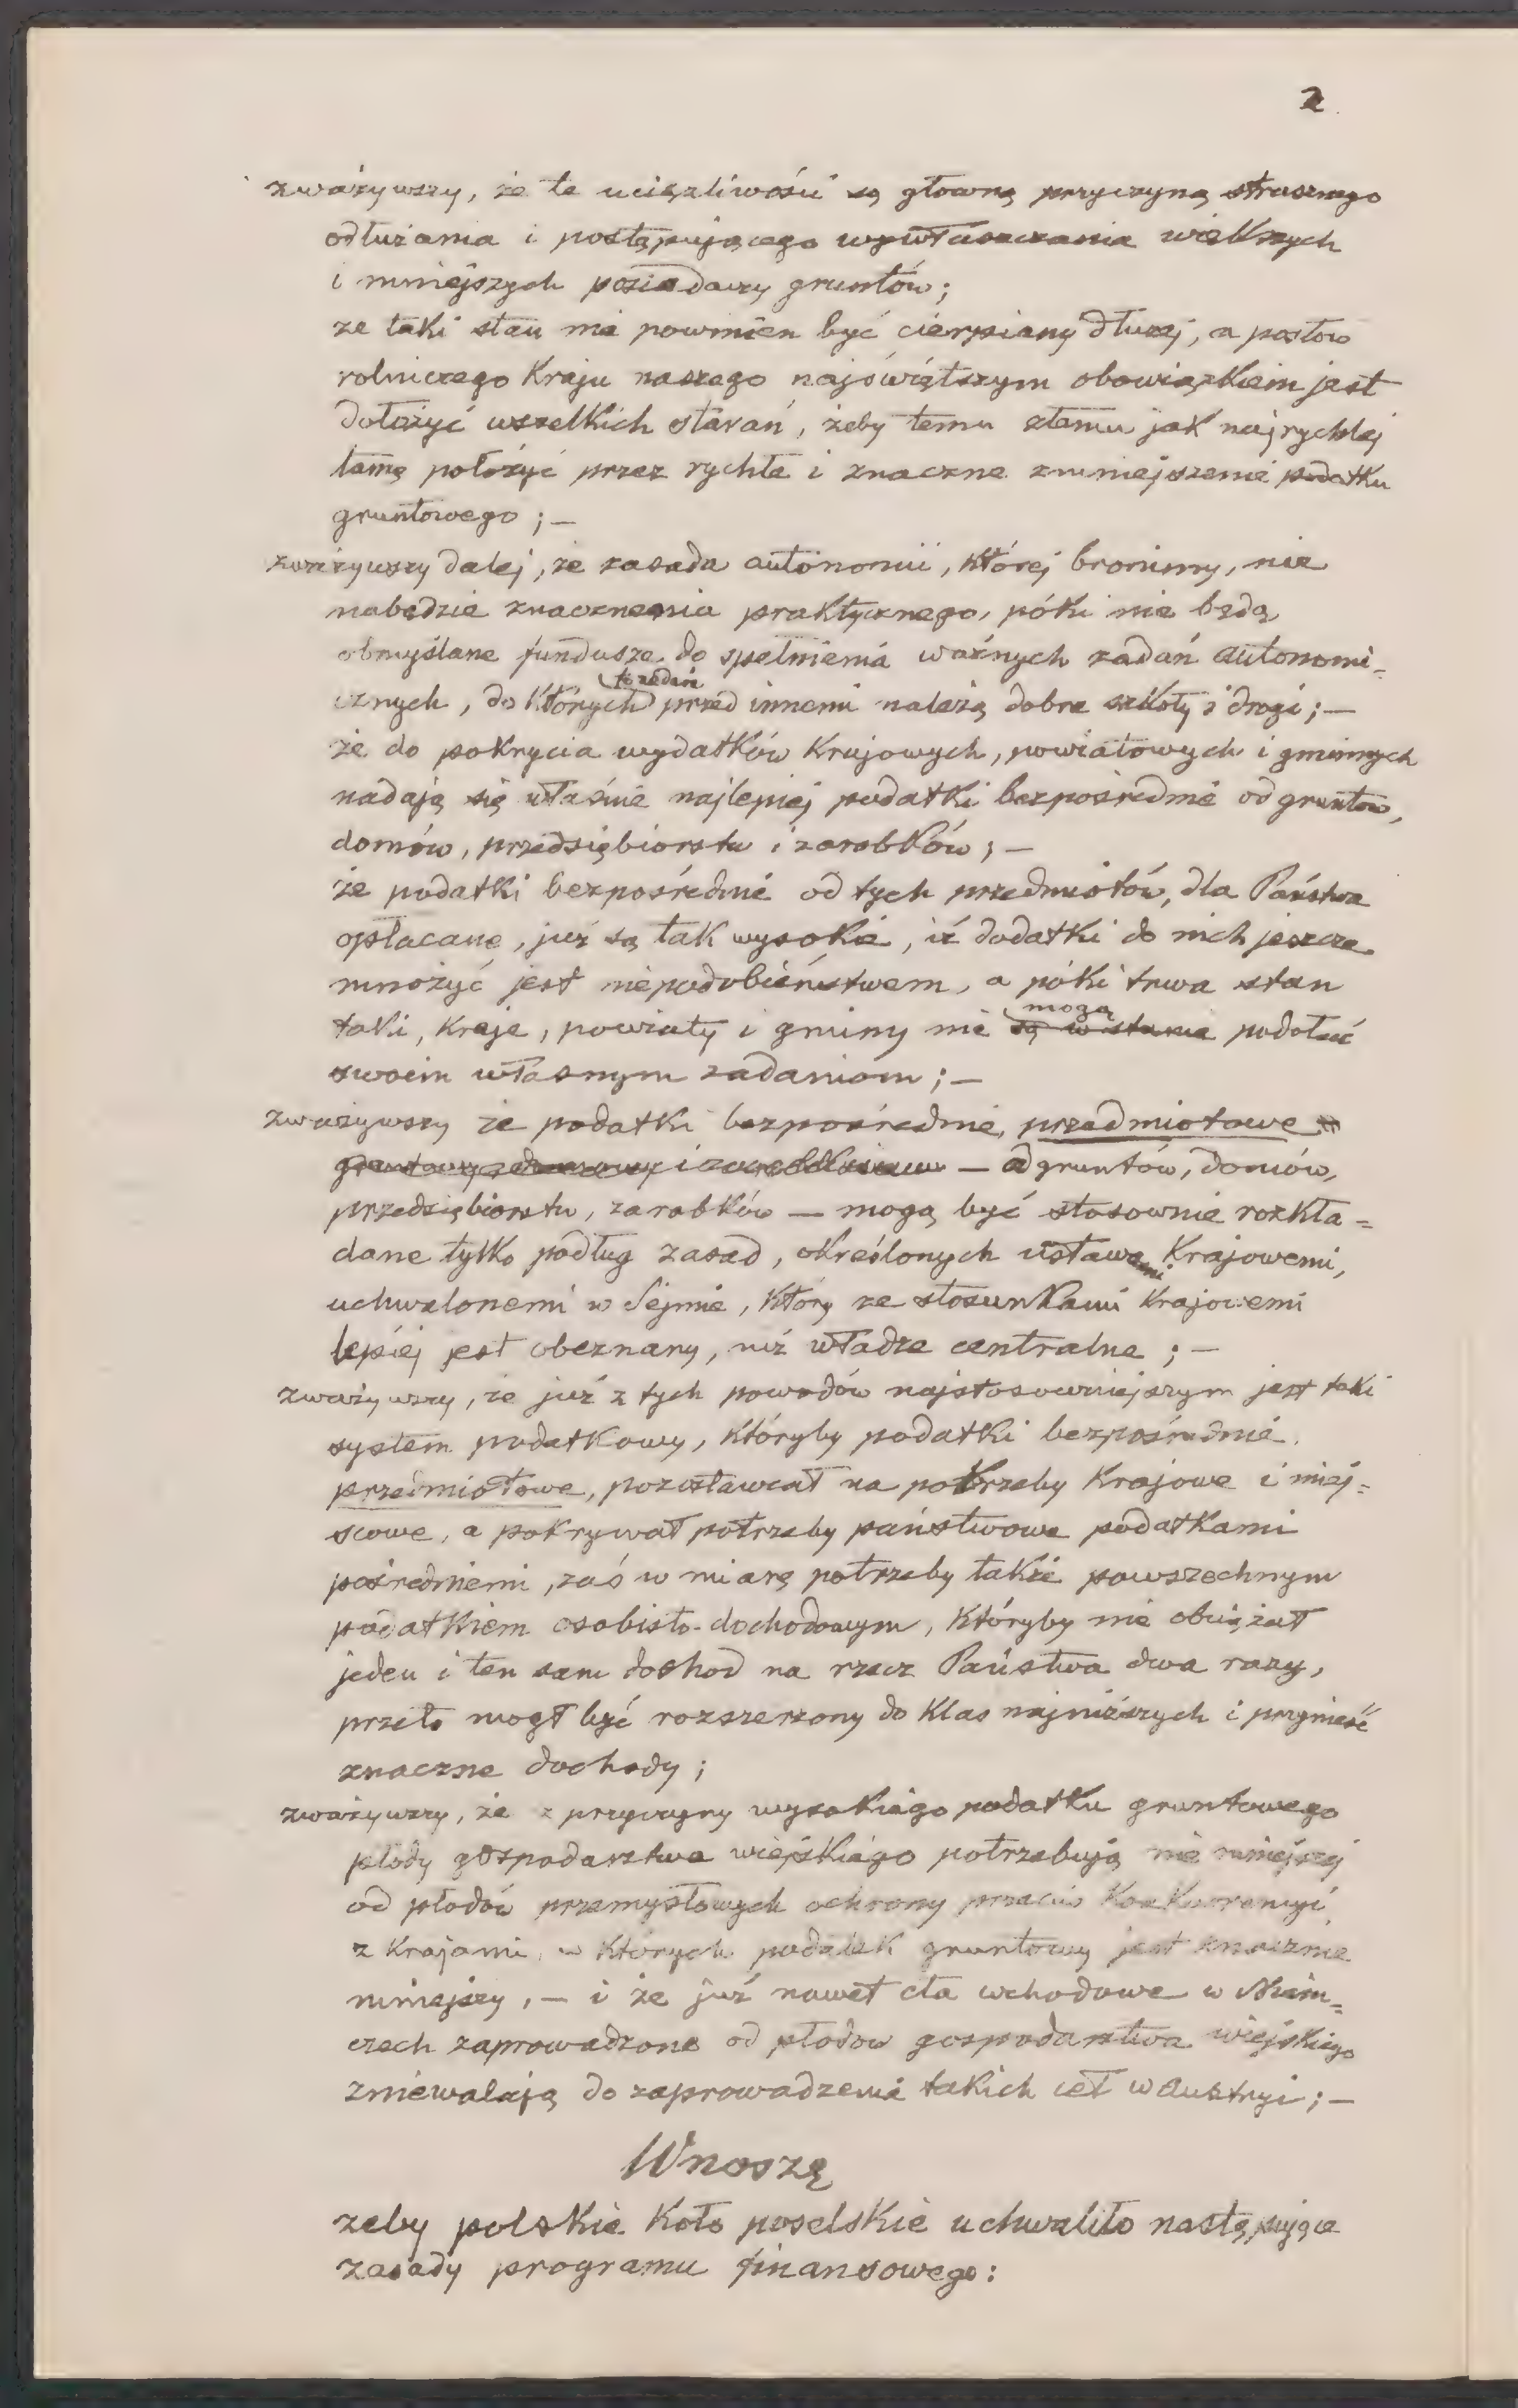 2
zważywszy, że te uciążliwości są główną przyczyną strasznego
odłużania i postępującego wywłaszczania większych
i mniejszych posiadaczy gruntów;
że taki stan nie powinien być cierpiany dłużej, a posłów
rolniczego Kraju naszego najświętszym obowiązkiem jest
dołożyć wszelkich starań, żeby temu złemu jak najrychlej
tamę położyć przez rychłe i znaczne zmniejszenie podatku
gruntowego; —
zważywszy dalej, że zasada autonomii, której bronimy, nie
nabędzie znaczenia praktycznego, póki nie będą
obmyślane fundusze do spełnienia ważnych zadań autonomi-
cznych, do których przed innemi należą dobre szkoły i drogi; —
że do pokrycia wydatków Krajowych, powiatowych i gminnych
nadają się właśnie najlepiej podatki bezpośrednie od gruntów,
domów, przedsiębiorstw i zarobków; —
że podatki bezpośrednie od tych przedmiotów, dla Państwa
opłacane, już są tak wysokie, iż dodatki do nich jeszcze
mnożyć jest niepodobieństwem, a póki trwa stan
taki, Kraje, powiaty i gminy nie są w stanie mogą podołać
swoim własnym zadaniom; —
zważywszy że podatki bezpośrednie, przedmiotowe
— od gruntów, domów,
przedsiębiorstw, zarobków — mogą być stosownie rozkła=
dane tylko podług zasad, określonych ustawami Krajowemi,
uchwalonemi w Sejmie, który ze stosunkami Krajowemi
lepiej jest obeznany, niż władze centralne; —
zważywszy, że już z tych powodów najstosowniejszym jest taki
system podatkowy, któryby podatki bezpośrednie
przedmiotowe, pozostawiał na potrzeby Krajowe i miej=
scowe, a pokrywał potrzeby państwowe podatkami
pośredniemi, zaś w miarę potrzeby także powszechnym
podatkiem osobisto-dochodowym, któryby nie obciążał
jeden i ten sam dochod na rzecz Państwa dwa razy,
przeto mogł być rozszerzony do Klas najniższych i przynieść
znaczne dochody;
zważywszy, że z przyczyny wysokiego podatku gruntowego
płody gospodarstwa wiejskiego potrzebują nie mniejszej
od płodów przemysłowych ochrony przeciw Konkurencyi
z Krajami, w których podatek gruntowy jest znacznie
mniejszy, — i że już nawet cła wchodowe w Niem=
czech zaprowadzone od płodow gospodarstwa wiejskiego
zniewalają do zaprowadzenia takich ceł w Austryi; —
Wnoszę
żeby polskie Koło poselskie uchwaliło następujące
zasady programu finansowego: